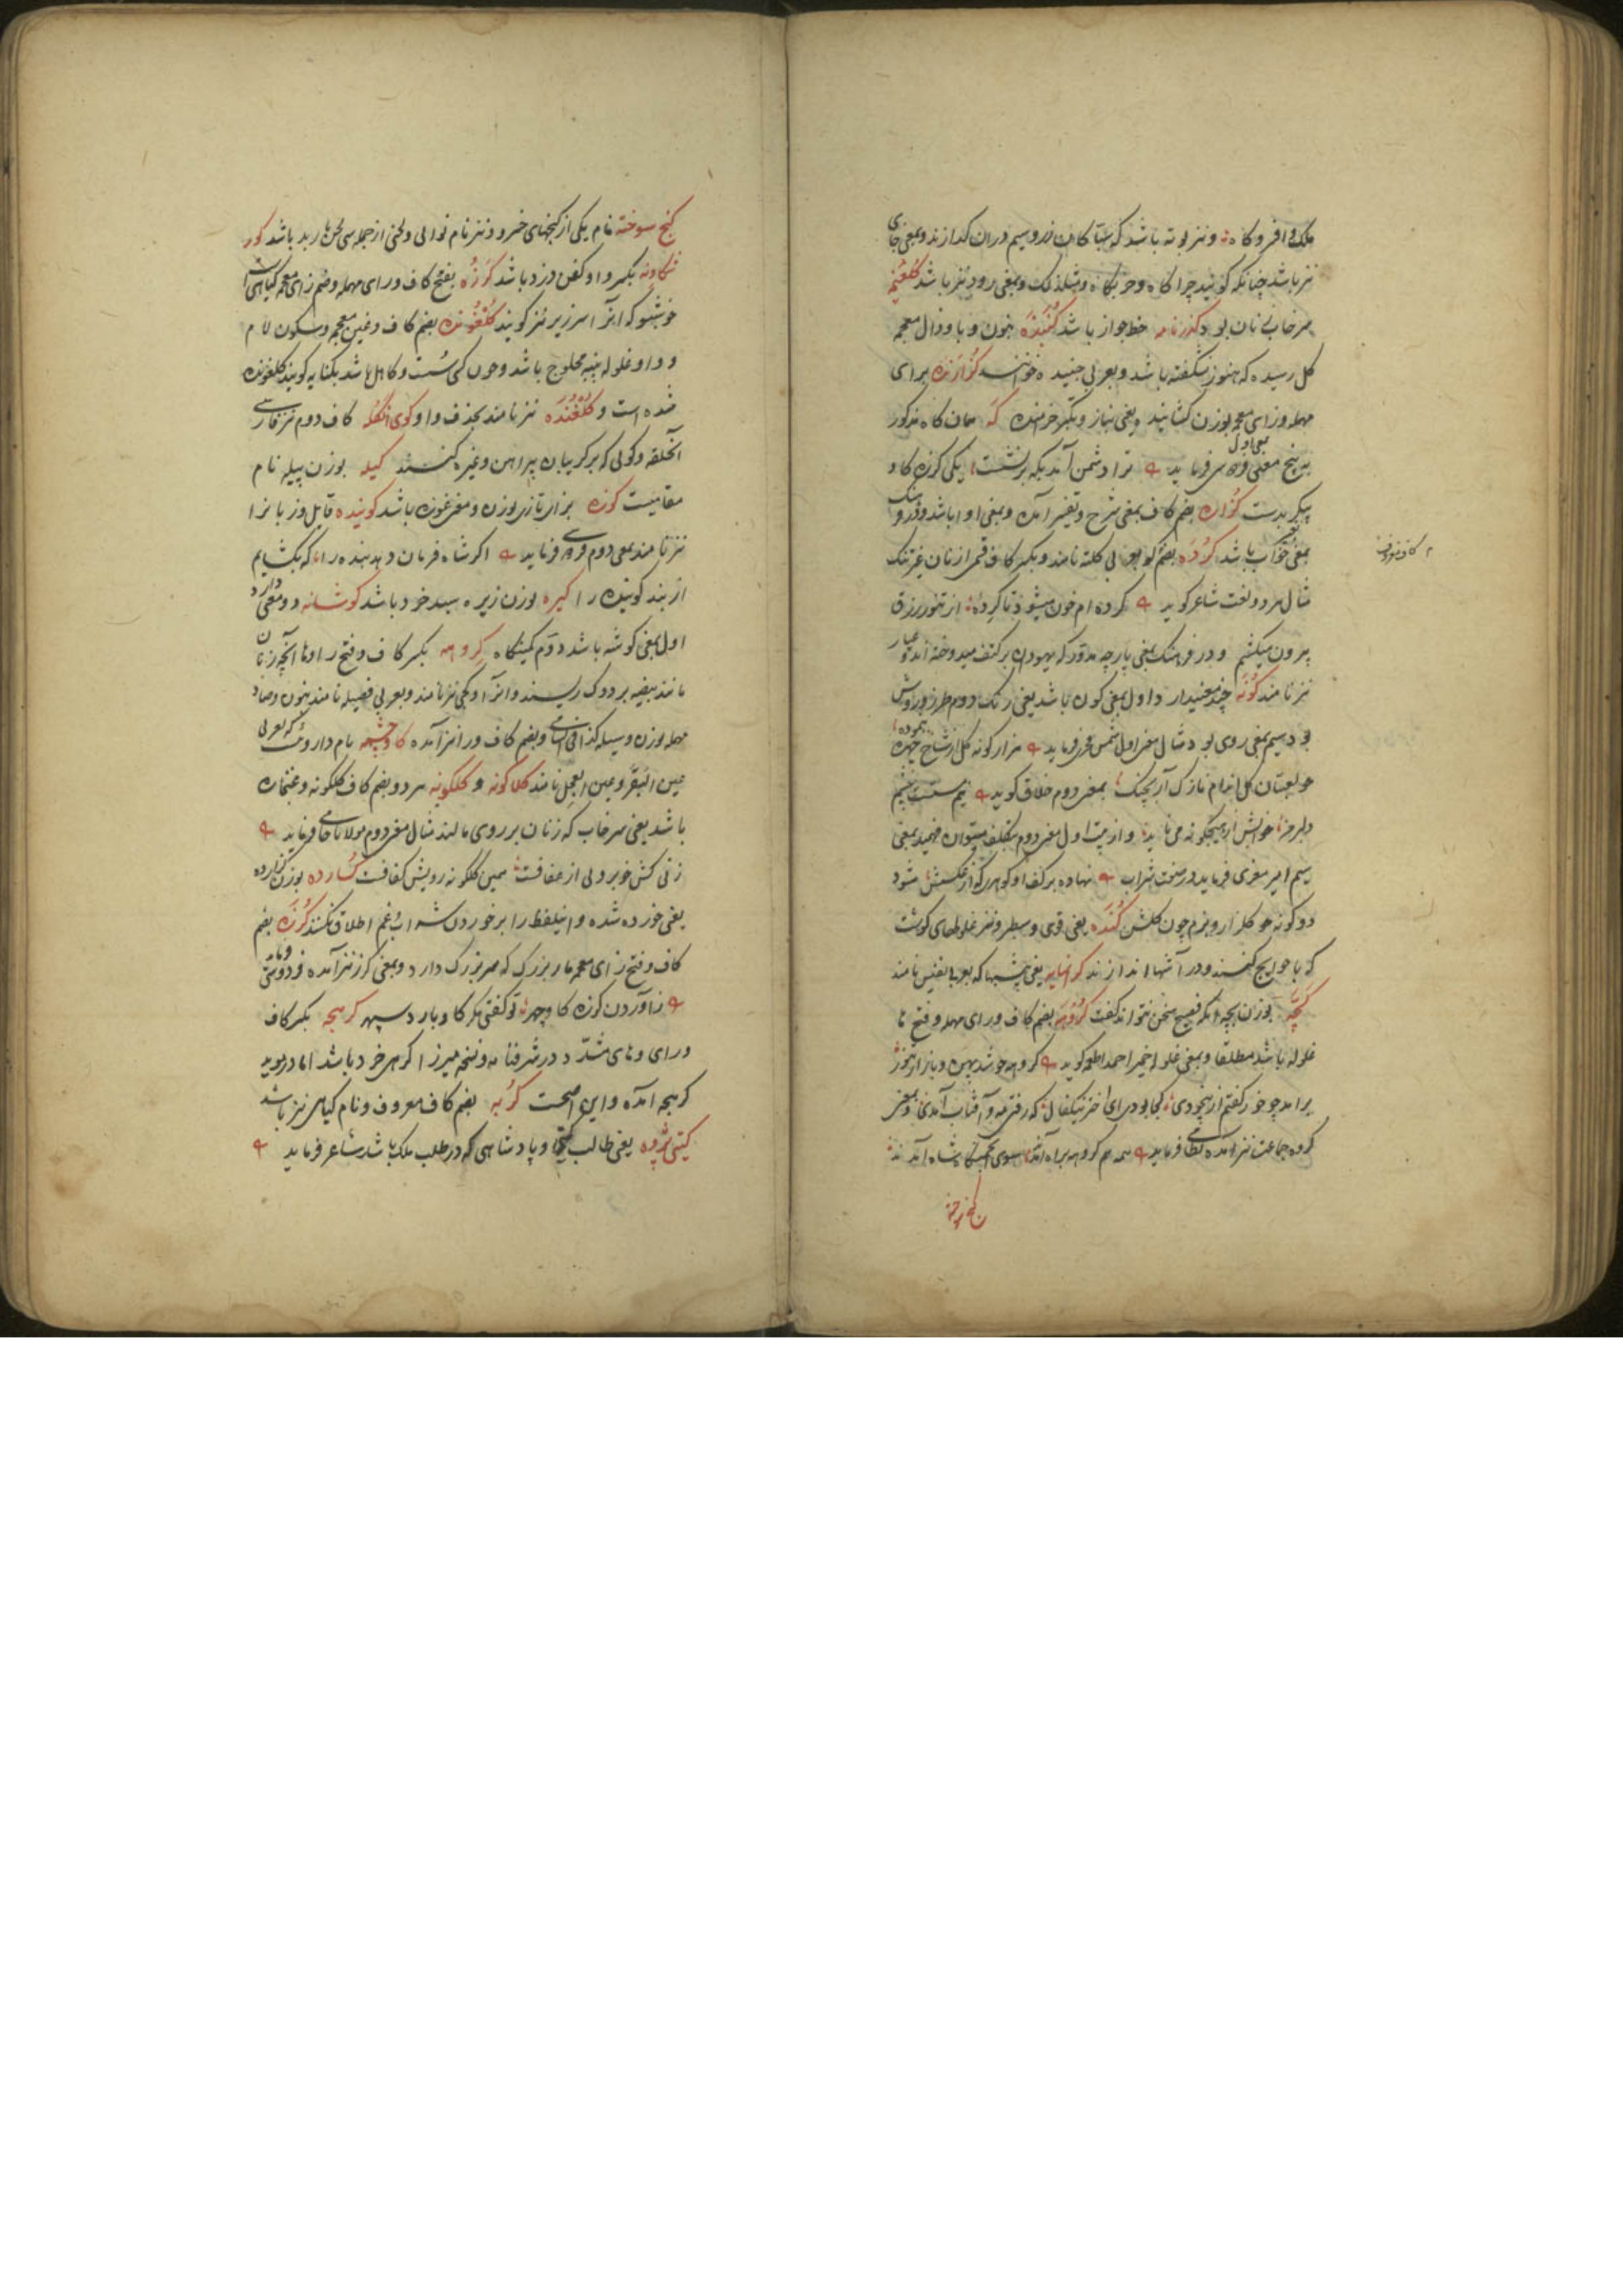 ملک و افر و کاه و نیز بوته باشد که سباکان زر و سیم در ان کدازند و بمعنی جای
نیز باشد چنانکه کویند چراکاه و حربکاه و مثل ذلک و بمعنی رود نیز باشد
سرخاب زنان بود کذرنامه خط جواز باشد کنبذه بنون و با و ذال معجمه
کل رسیده که هنوز نشکفته باشد و بعربی جنبیده خوانند کرازنده برای
مهمله و زای معجمه بوزن کشانید یعنی بناز و تکبر خرامنده که همان کاه مذکور
به پنج معنی بمعنی اول فرماید ترا دشمن آمد بکه برنشست یکی کرزه کاو
پیکر بدست کزاره بضم کاف بمعنی شرح و تفسیر آمده و بمعنی ادا باشد و در فرهنک
بمعنی خواب باشد کرده بضم کو بعربی کلیه نامند و بکسر کاف قمی از نان غیر تنک
مثال هر دو لغت شاعر کوید کرده ام خون میشود تا کرده از تنور رزق
بیرون میکشم و در فرهنک بمعنی پارچه مدور که یهودان بر کتف میدوخته اند و غیار
نیز نامند کونه چند معنیدارد اول بمعنی کون باشد یعنی رنک دوم طرز و روش
بود سیم بمعنی روی بود مثال معنی اول شمس فخر فرماید هزار کونه کل از شاخ چهره بنموده
چو لعبتان کل اندام نازک آریجنک بمعنی دوم خلاق کوید نیم مست چشم
دلبر من خوابش ار هیچکونه می ناید و از بیت اول معنی دوم بتکلف میتوان فهمید بمعنی
سیم امیر معزی فرماید در صفت شراب نهاده بر کف او کوهر که از عکسش شود
دو کونه چو کلنار و بزم چون کلشن کنده یعنی قوی و سطبر و نیز غلولهای کوشت
که با حوایج کنند و در آشها اندازند کرانمایه یعنی پیشبها که بعربی نفیس نامند
کچه بوزن بچه انکه فصیح سخن نتواند کفت کروهه بضم کاف و رای مهمله و فتح ها
غلوله باشد مطلقا و بمعنی غلوله خمیر احمد اطعمه کوید کروهه جو شد پهن و بازار جوز
برامد چو خور کفتم از بیخودی کجا بودی ای اختر نیکفال که رفتی مه و آفتاب آمدی و بمعنی
کروه جماعت نیز آمده نظامی فرماید همه هم کروهه براه آمدند سوی شاه آمدند
کنج سوخته
کنج سوخته نام یکی از کنجهای خسرو و نیز نام نوایی و لحنی از جمله سی لحن باربد باشد کور
شکاونه بکسر واو کفن دزد باشد کرزه بفتح کاف و رای مهمله و ضم زای معجمه کیاهی است
خوشبو که انرا سرزیره نیز کویند کلغونده بضم کاف و غین معجمه و سکون لام
و واو غلوله پنبه محلوج باشد و چون کسی سست و کاهل باشد بکنایه کویند کلغونده
شده است و کلغنده نیز نامند بحذف واو و کوی انکله کاف دوم نیز فارسی
آنحلقه و کویی که بر کریبان پیراهن و غیره کنند کیله بوزن پیله نام
مقامیست کوزه بزای تازی بوزن و معنی غوزه باشد کوینده قایل و زبانرا
نیز نامند بمعنی دوم فردوسی فرماید اکر شاه فرمان دهد بنده را که بکشایم
از بند کوینده را کیره بوزن زیره سبد خرد باشد کوشانه دو معنی دارد
اول بمعنی کوشه باشد دوم کمینکاه کروهه بکسر کاف و فتح را و ها آنچه زنان
مانند بیضه بر دوک ریسند و انرا نیز نامند و بعربی فصیله نامند بنون و صاد
مهمله بوزن وسیله کذا فی السامی و بضم کاف و را نیز آمده کاوچشمه نام داروییست که بعربی
عین البقر و عین العجل نامند کلاکونه و کلکونه هر دو بضم کاف کلکونه و غنجاره
باشد یعنی سرخاب که زنان بر روی مالند مثال معنی دوم مولانا جامی فرماید
زنی کش خوبرویی از عفافت همین کلکونه رویش کفافت کسارده بوزن کذارده
یعنی خورده شده و اینلفظ را بر خوردن شراب و غم اطلاق نکنند کرزه بضم
کاف و فتح زای معجمه مار بزرک که سر بزرک دارد و بمعنی کرز نیز آمده فردوسی
ز آوردن کرزه کاو چهر تو کفتی مکر کاو بارد سپهر کرهچه بکسر کاف
و رای و های مشدد در شرفنامه و نسخه میرزا کره خرد باشد اما در موید
کرهجه آمده و این اصحست کربه بضم کاف معروف و نام کیاهی نیز باشد
کیتی پژوه یعنی طالب کیتی و پادشاهی که در طلب ملک باشد شاعر فرماید